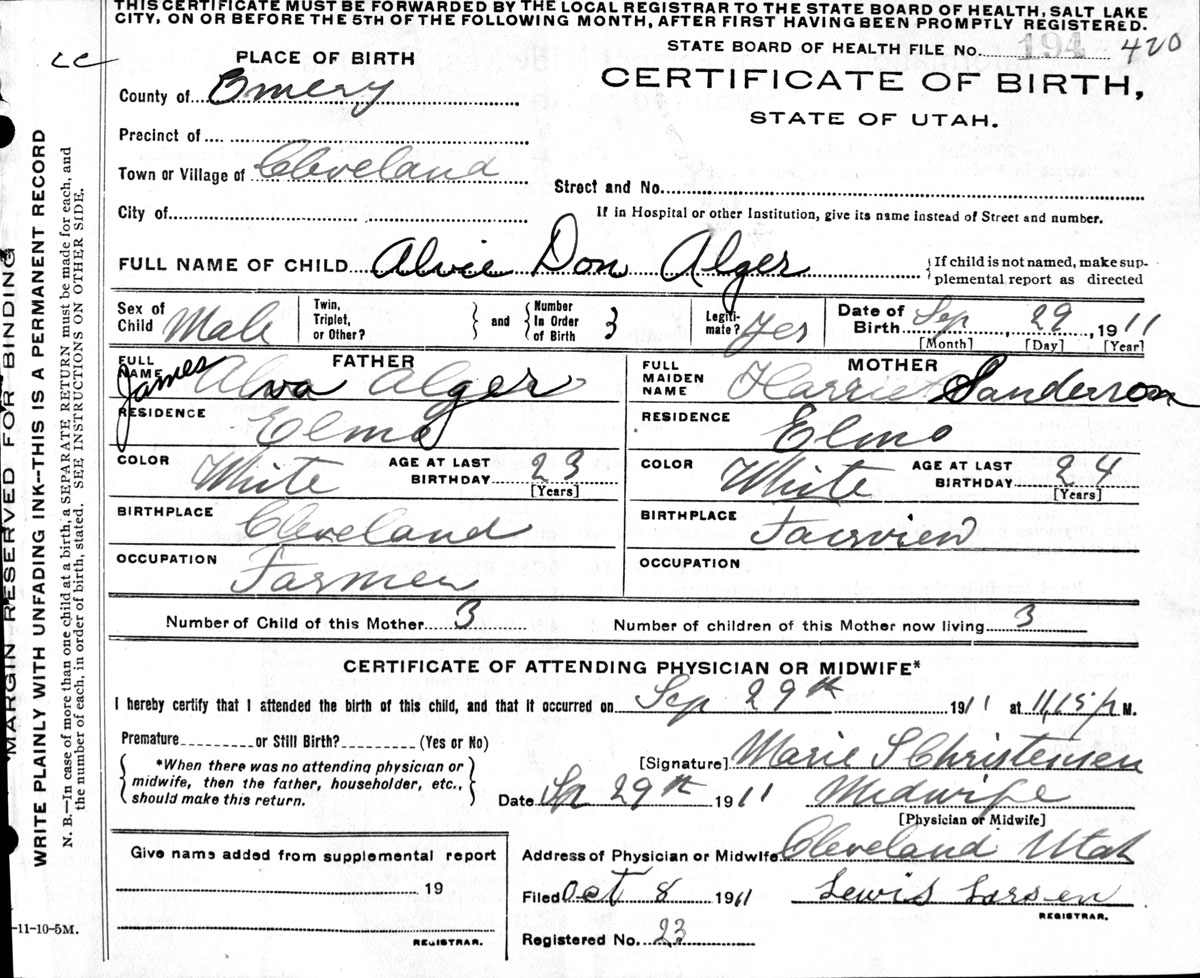 THIS CERTIFICATE MUST BE FORWARDED BY THE LOCAL REGISTRAR TO THE STATE BOARD OF HEALTH, SALT LAKE
CITY, ON OR BEFORE THE 5TH OF THE FOLLOWING MONTH, AFTER FIRST HAVING BEEN PROMPTLY REGISTERED.
STATE BOARD OF HEALTH FILE No. 194 420
PLACE OF BIRTH
CERTIFICATE OF BIRTH,
STATE OF UTAH.
County of Emery
Precinct of
Town or Village of Cleveland
Street and No.
City of
If in Hospital or other Institution, give its name instead of Street and number.
FULL NAME OF CHILD Alvie Don Alger {If child is not named, make sup-
plemental report as directed
Sex of Child Male Twin, Triplet, or Other? } and { Number In Order of Birth 3 Legiti-mate? Yes Date of Birth Sep, 29, 1911
[Month] [Day] [Year]
FATHER MOTHER
FULL NAME James Alva Alger FULL MAIDEN NAME Harriet Sanderson
RESIDENCE Elmo RESIDENCE Elmo
COLOR White AGE AT LAST BIRTHDAY 23 [Years] COLOR White AGE AT LAST BIRTHDAY 24 [Years]
BIRTHPLACE Cleveland BIRTHPLACE Fairview
OCCUPATION Farmer OCCUPATION
Number of Child of this Mother 3 Number of children of this Mother now living 3
CERTIFICATE OF ATTENDING PHYSICIAN OR MIDWIFE*
I hereby certify that I attended the birth of this child, and that it occurred on Sep 29th 1911 at 11,15 p M.
Premature or Still Birth? (Yes or No)
{ *When there was no attending physician or
midwife, then the father, householder, etc.,
should make this return. }
[Signature] Marie S Christensen
Date Sp 29th 1911 Midwife
[Physician or Midwife]
Give name added from supplemental report
19
REGISTRAR.
Address of Physician or Midwife Cleveland Utah
Filed Oct 8 1911 Lewis Larsen
REGISTRAR.
Registered No. 23
-11-10-5M.
MARGIN RESERVED FOR BINDING
WRITE PLAINLY WITH UNFADING INK--THIS IS A PERMANENT RECORD
N. B.—In case of more than one child at a birth, a SEPARATE RETURN must be made for each, and
the number of each, in order of birth, stated. SEE INSTRUCTIONS ON OTHER SIDE.